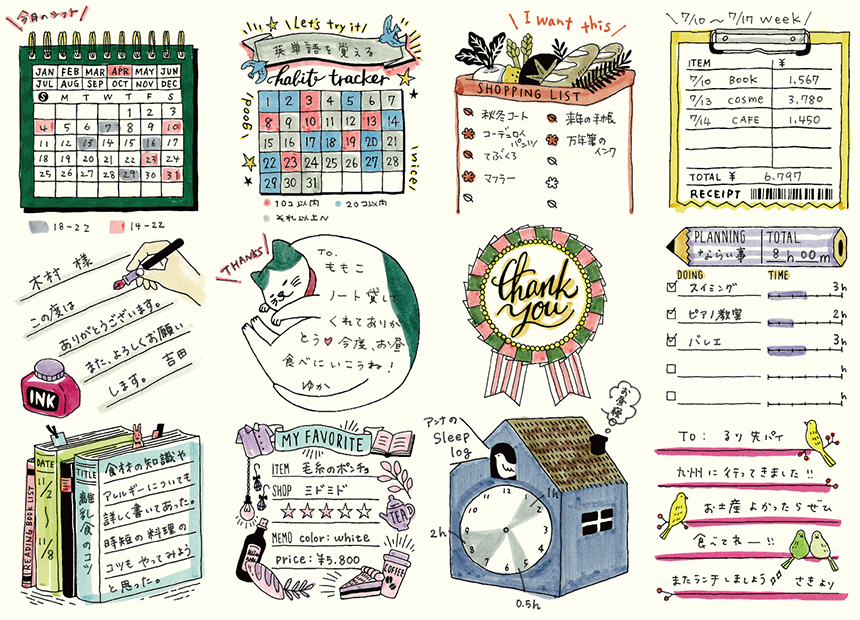 今月のシフト
JAN FEB MAR APR MAY JUN
JUL AUG SEP OCT NOV DEC
S M T W T F S
1 2 3
4 5 6 7 8 9 10
11 12 13 14 15 16 17
18 19 20 21 22 23 24
25 26 27 28 29 30 31
18-22 14-22
Let's try it!
英単語を覚える
habit tracker
good!
nice!
1 2 3 4 5 6 7
8 9 10 11 12 13 14
15 16 17 18 19 20 21
22 23 24 25 26 27 28
29 30 31
10コ以内 20コ以内
それ以上〜
I want this
SHOPPING LIST
秋冬コート
コーデュロイパンツ
てぶくろ
マフラー
来年の手帳
万年筆の
インク
7/10〜7/17 week
ITEM ¥
7/10 BOOK 1,567
7/13 cosme 3,780
7/14 CAFE 1,450
TOTAL ¥ 6,797
RECEIPT
木村 様
この度は
ありがとうございます。
また、よろしくお願い
します。 吉田
INK
THANKS
To.
ももこ
ノート貸して
くれてありが
とう♥今度、お昼
食べにいこうね!
ゆか
thank
you
PLANNING
ならい事
TOTAL
8h 00m
DOING TIME
スイミング 3h
ピアノ教室 2h
バレエ 3h
h
h
READING BOOK LIST
DATE
11/2
〜
11/8
TITLE
離乳食のコツ
食材の知識や
アレルギーについても
詳しく書いてあった。
時短の料理の
コツもやってみよう
と思った。
MY FAVORITE
ITEM 毛糸のポンチョ
SHOP ミドミド
MEMO color: white
price: ¥5.800
TEA
COFFEE
アンナの
Sleep
log
お昼寝
12 1 2 3 4 5 6 7 8 9 10 11
1h
2h
0.5h
TO: るり先パイ
九州に行ってきました!!
お土産よかったらぜひ
食べてねー!!
またランチしましょう♪ さきより